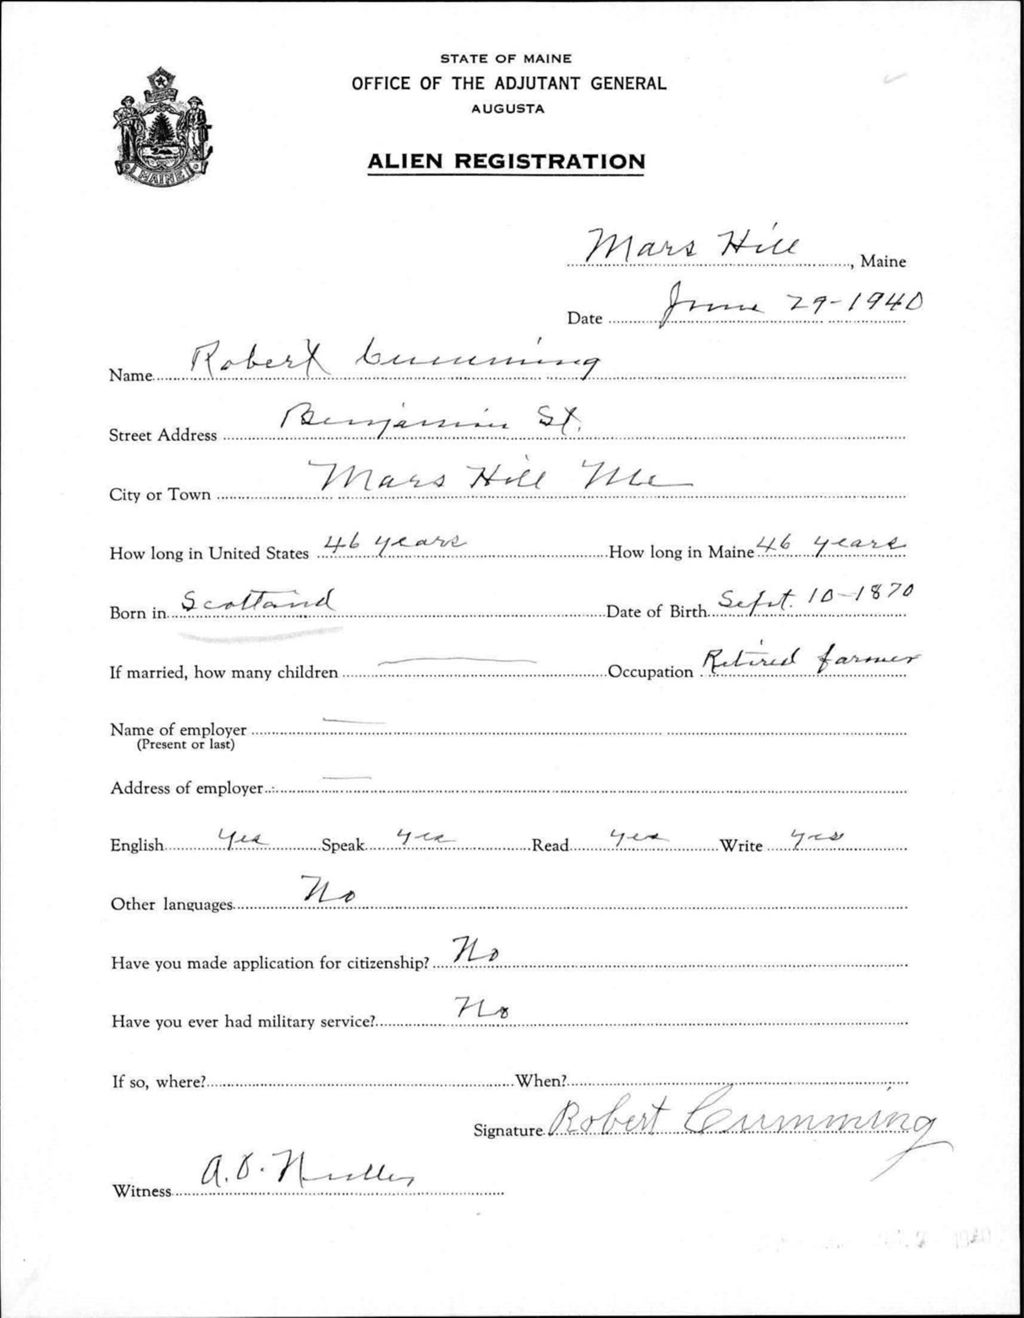 STATE OF MAINE
OFFICE OF THE ADJUTANT GENERAL
AUGUSTA
ALIEN REGISTRATION
MAINE
Mars Hill, Maine
Date June 29-1940
Name Robert Cumming
Street Address Benjamin St.
City or Town Mars Hill Me
How long in United States 46 years How long in Maine 46 years
Born in Scotland Date of Birth Sept. 10-1870
If married, how many children — Occupation Retired farmer
Name of employer —
(Present or last)
Address of employer —
English yes Speak yes Read yes Write yes
Other languages No
Have you made application for citizenship? No
Have you ever had military service? No
If so, where? When?
Signature Robert Cumming
Witness A. O.